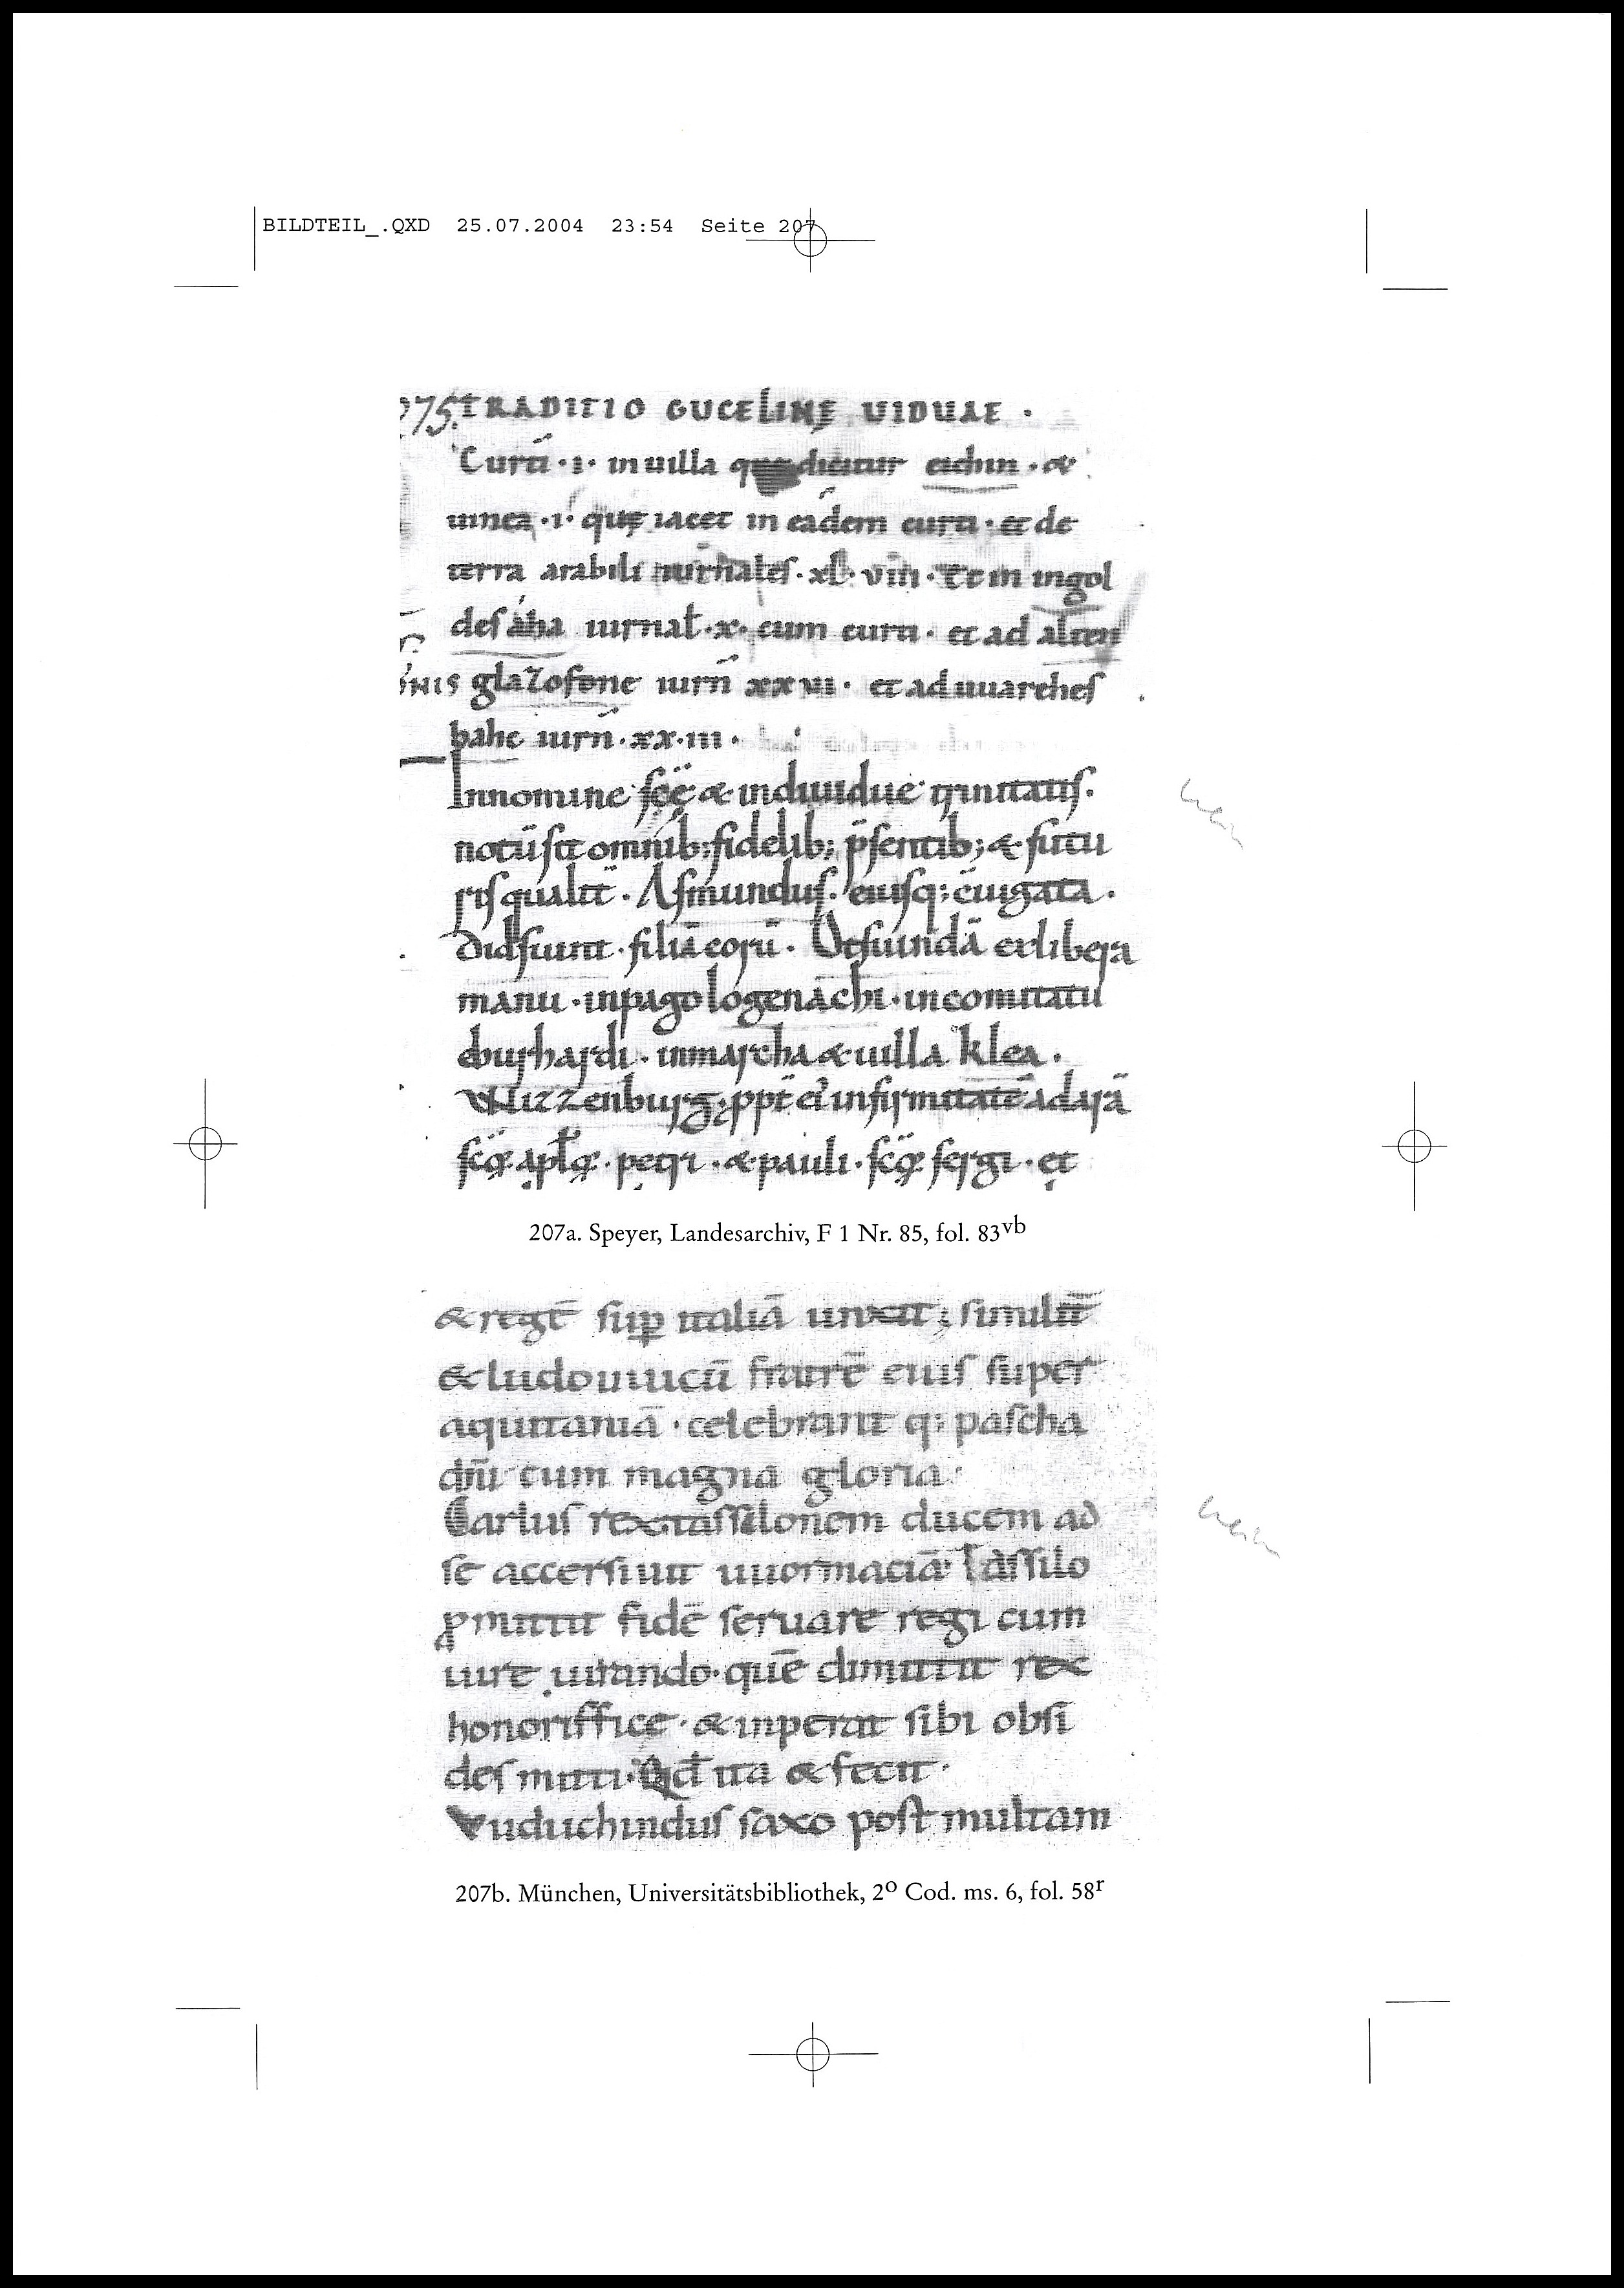 BILDTEIL_.QXD 25.07.2004 23:54 Seite 207
275. TRADITIO GUCELINĘ UIDUAE ·
Curti̅ · i · in uilla quę dicitur eichin · &
uinea · i · quę iacet in eadem curti · et de
terra arabili iurnales · xl · viii · Et in ingol
desaha iurnał · x · cum curti · et ad alten
glaZofone iurn̅ xxvi · et ad uuarehes
bahc iurn̅ · xx · iii ·
Innomine sc̅ę & indiuidue trinitatis.
notu̅ sit omnib; fidelib; p̅sentib; & futu
ris qualit̅ · Asmundus · eiusq; c̅iugata ·
Didsuint · filia̅ eoru̅ · Otsuinda̅ exlibera
manu · inpago logenachi · incomitatu
eburhardi · inmarcha & uilla klea ·
Wizzenburg; ꝓpt̅ ei infirmitate̅ adara̅
sc̅oꝝ apl̅oꝝ · petri · & pauli · sc̅oꝝ sergi · et
207a. Speyer, Landesarchiv, F 1 Nr. 85, fol. 83vb
& rege̅ suꝑ italia̅ unxit ; similit̅
& ludouuicu̅ fratre̅ eius super
aquitania̅ · celebrant q; pascha
dn̅i cum magna gloria ·
Carlus rex tassilonem ducem ad
se accersiuit uuormacia̅ · Tassilo
ꝓmittit fide̅ seruare regi cum
iure iurando · que̅ dimittit rex
honoriffice · & inperat sibi obsi
des mitti · Qd̅ ita & fecit ·
Vuduchindus saxo post multam
207b. München, Universitätsbibliothek, 2o Cod. ms. 6, fol. 58r